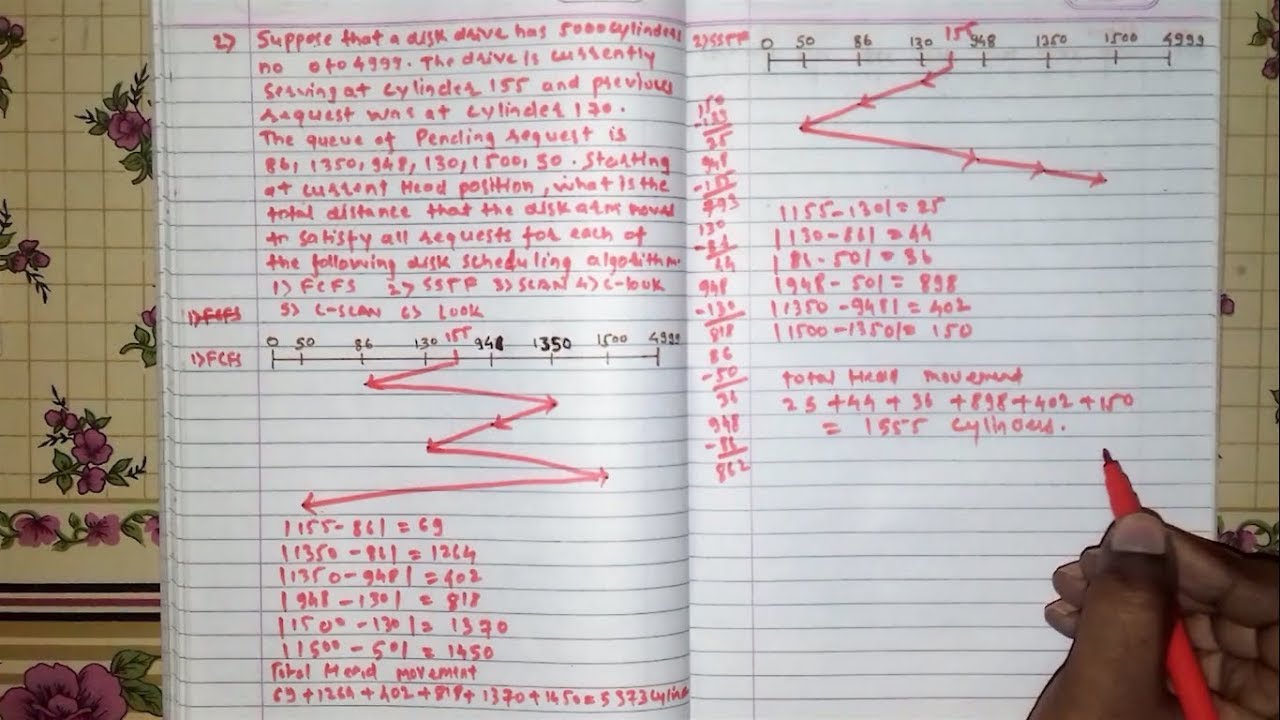 2) Suppose that a disk drive has 5000 cylinders
no 0 to 4999. The drive is currently
serving at cylinder 155 and previous
request was at cylinder 170.
The queue of Pending request is
86, 1350, 948, 130, 1500, 50. Starting
at current Head position, what is the
total distance that the disk arm moves
to satisfy all requests for each of
the following disk scheduling algorithm.
1) FCFS 2) SSTF 3) SCAN 4) C-LOOK
5) C-SCAN 6) LOOK
1) FCFS
155
0 50 86 130 948 1350 1500 4999
1) FCFS
|155-86| = 69
|1350-86| = 1264
|1350-948| = 402
|948-130| = 818
|1500-130| = 1370
|1500-50| = 1450
Total Head movement
69+1264+402+818+1370+1450=5373 cylin
2) SSTF
155
0 50 86 130 948 1350 1500 4999
25
948
-155
793
130
-86
44
948
-130
818
86
-50
36
948
-86
862
|155-130| = 25
|130-86| = 44
|86-50| = 36
|948-50| = 898
|1350-948| = 402
|1500-1350| = 150
Total Head movement
25+44+36+898+402+150
= 1555 cylinders.